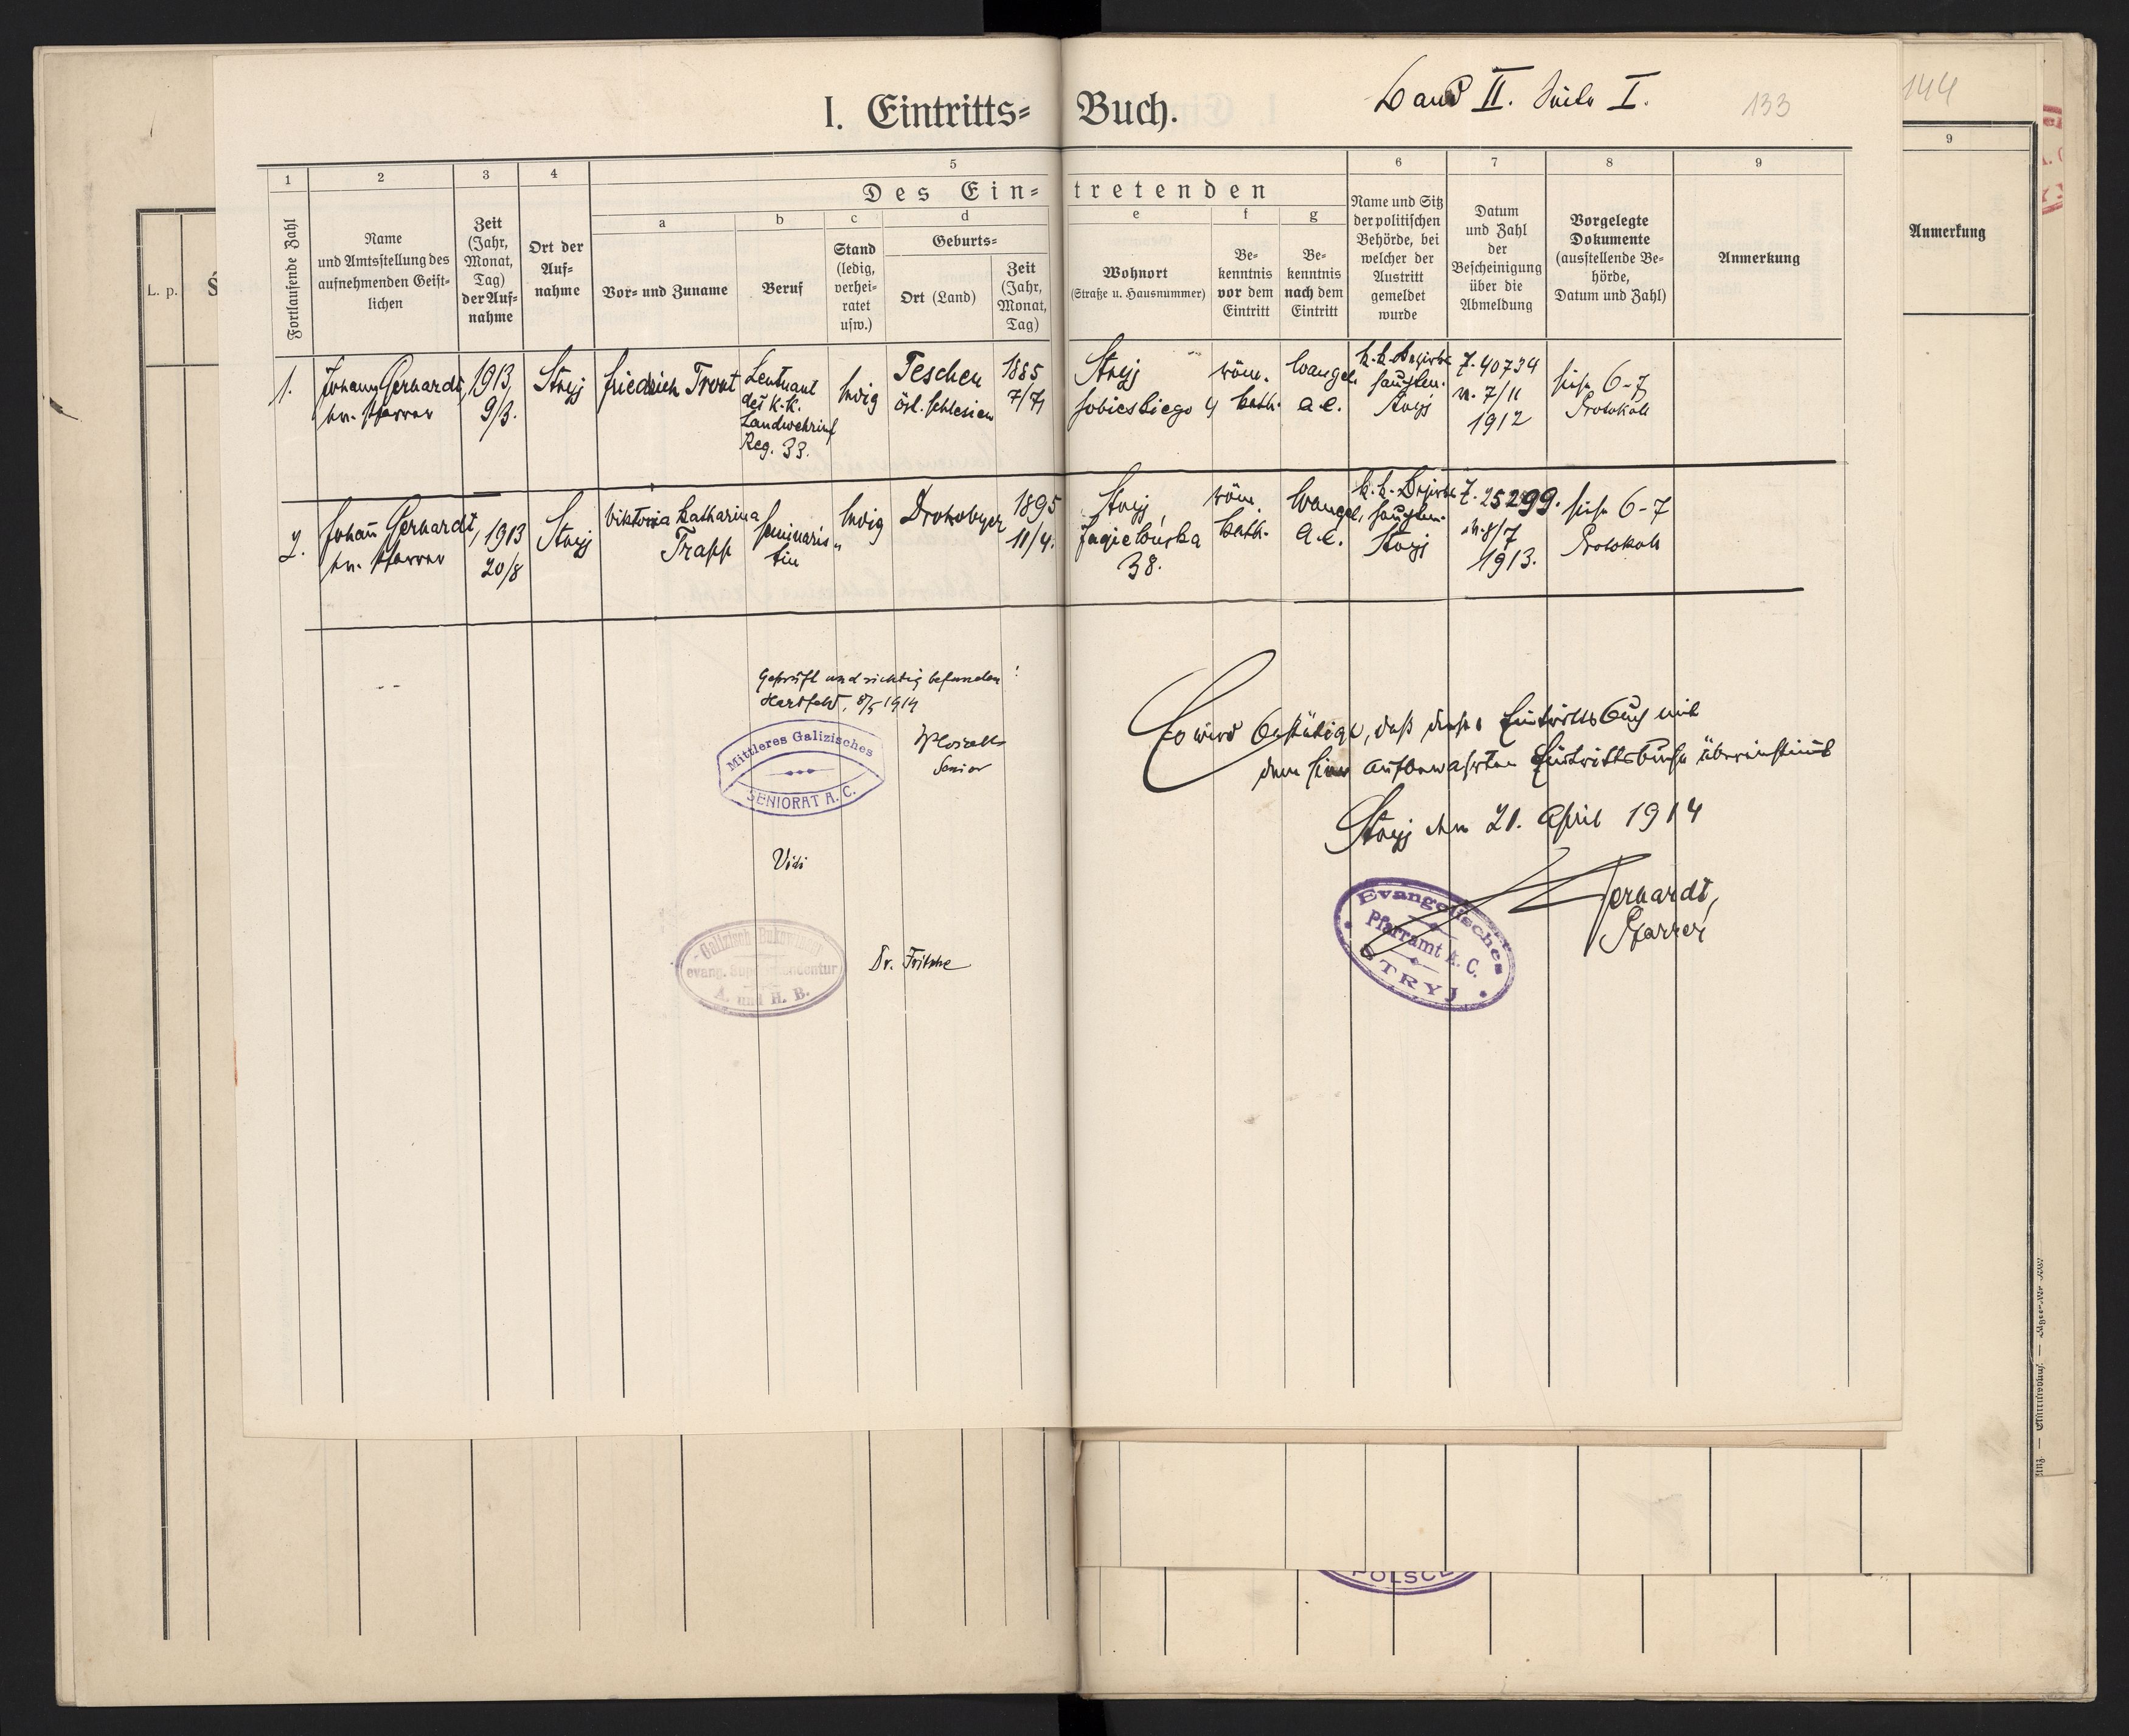 I. Eintritts= Buch.
Band II. Seite I.
133
144
1
2
3
4
5
6
7
8
9
9
Des Ein= tretenden
Fortlaufende Zahl
Name
und Amtsstellung des
aufnehmenden Geist=
lichen
Zeit
(Jahr,
Monat,
Tag)
der Auf=
nahme
Ort der
Auf=
nahme
a
Vor= und Zuname
b
Beruf
c
Stand
(ledig,
verhei=
ratet
usw.)
d
Geburts=
Ort (Land)
Zeit
(Jahr,
Monat,
Tag)
e
Wohnort
(Straße u. Hausnummer)
f
Be=
kenntnis
vor dem
Eintritt
g
Be=
kenntnis
nach dem
Eintritt
Name und Sitz
der politischen
Behörde, bei
welcher der
Austritt
gemeldet
wurde
Datum
und Zahl
der
Bescheinigung
über die
Abmeldung
Vorgelegte
Dokumente
(ausstellende Be=
hörde,
Datum und Zahl)
Anmerkung
Anmerkung
L. p.
1.
Johann Gerhardt,
ev. Pfarrer
1913,
9/3.
Stryj
Friedrich
Leutnant
des k.k.
Landwehrinf
Reg. 33.
ledig
Teschen
öst. Schlesien
1885
7/7
Stryj
Sobieskiego 4
röm.
kath.
evangel.
A.C.
k.k. Bezirks
hauptm.
Stryj
Z. 40734
v. 7/11
1912
siehe 6-7
Protokoll
2.
Johann Gerhardt,
ev. Pfarrer
1913
20/8
Stryj
Viktoria Katharina
Trapp
Seminaris„
tin
ledig
Drohobycz
1895
11/4.
Stryj,
Jagielońska
38.
röm.
kath.
evangel.
A.C.
k.k. Bezirks
hauptm.
Stryj
Z. 25299.
v. 8/7
1913.
siehe 6-7
Protokoll
Geprüft und richtig befunden!
Hartfeld, 8/5 1914
Mittleres Galizisches
SENIORAT A. C.
Senior
Vidi
Galizisch-Bukowiner
evang. Superintendentur
A. und H. B.
Dr. Fritsche
Es wird bestätigt, daß dieses Eintrittsbuch mit
dem hier aufbewahrten Eintrittsbuche übereinstimmt
Stryj den 21. April 1914
Gerhardt,
Pfarrer
Evangelisches
Pfarramt A. C.
STRYJ
POLSCE